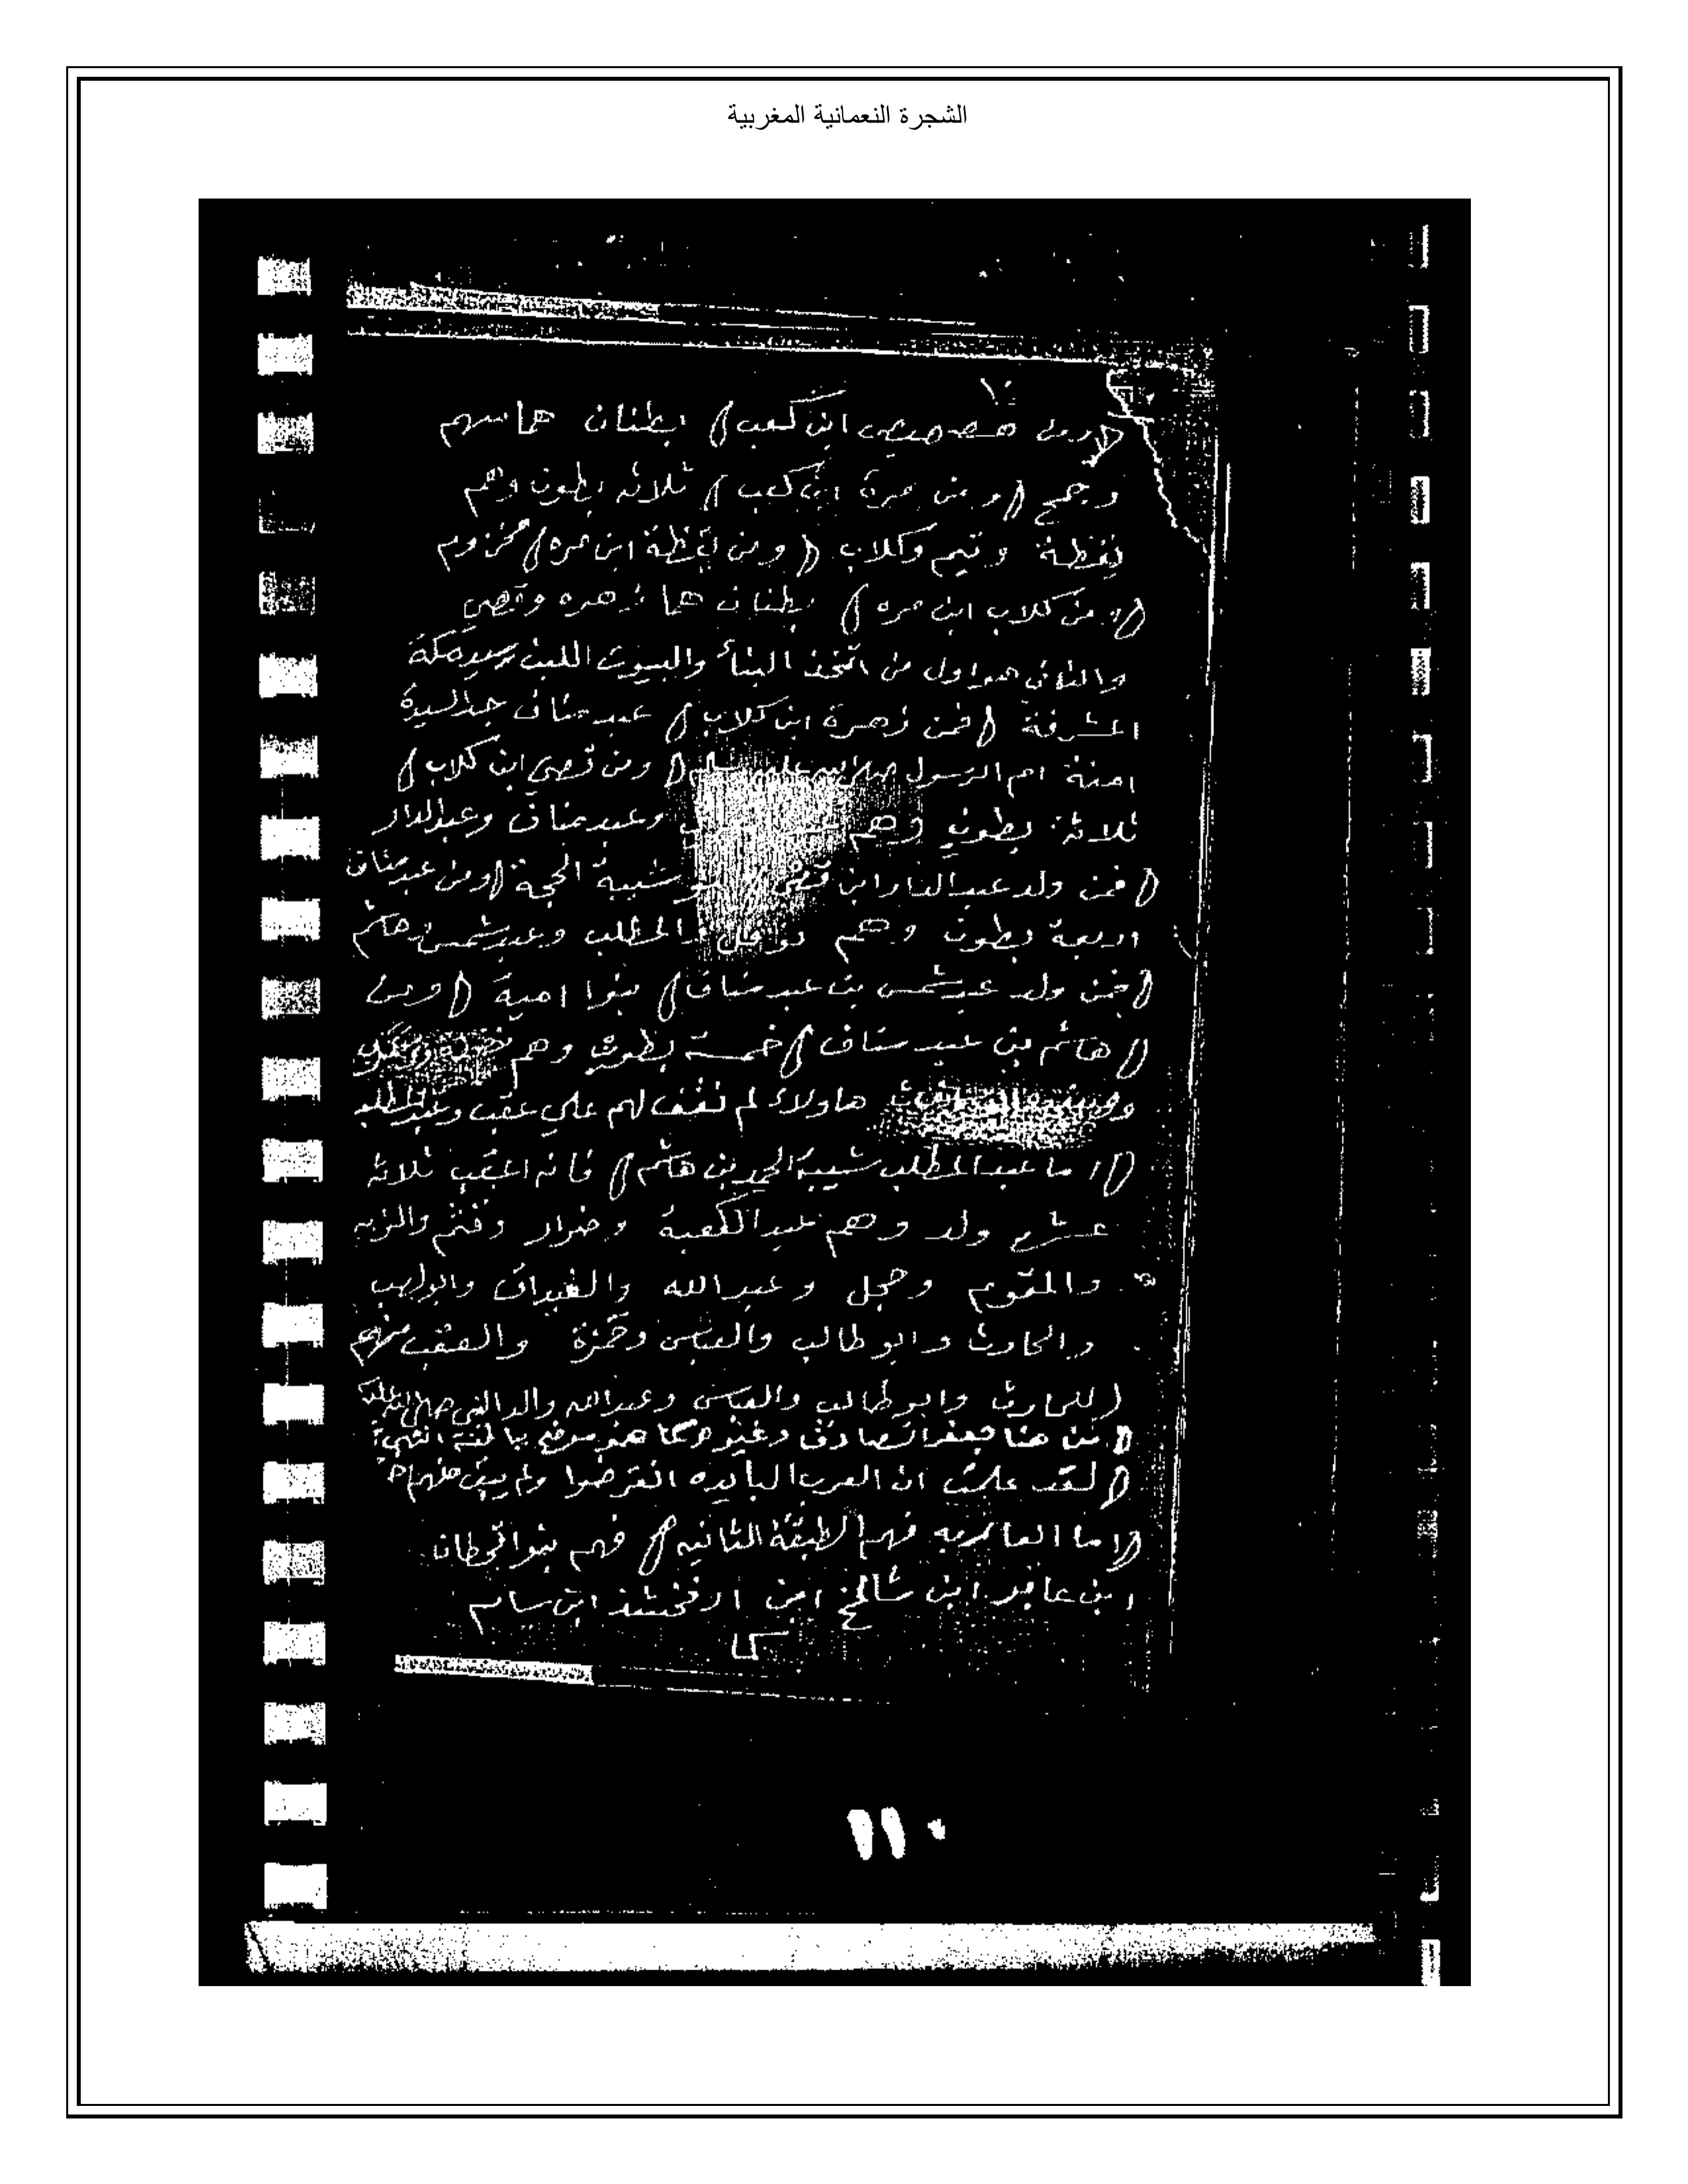 الشجرة النعمانية المغربية
١٠
(ومن هصيص ابن كعب) بطنان هما سهم
وجمح (ومن مرة ابن كعب) ثلاثه بطون وهم
يقظة وتيم وكلاب (ومن يقظة ابن مره) مخزوم
(من كلاب ابن مره) بطنان هما زهره وقصي
والثاني هو اول من اتخذ البناء والبيوت اللبن بمكة
المشرفة (فمن زهرة ابن كلاب) عبد مناف جد السيدة
امنة ام الرسول صلى الله عليه وسلم (ومن قصي ابن كلاب)
ثلاثة بطون وهم وعبد مناف وعبد الدار
(فمن ولد عبد الدار ابن قصي شيبة الحجبة (ومن عبد مناف
اربعة بطون وهم نوفل والمطلب وعبد شمس وهاشم
(فمن ولد عبد شمس بن عبد مناف) بنوا امية (ومن
(هاشم بن عبد مناف) خمسة بطون وهم
هاولاء لم نقف لهم علي عقب وعبد المطلب
(اما عبد المطلب شيبة الحمد بن هاشم) فانه اعقب ثلاثه
عشر ولد وهم عبد الكعبة وضرار وقثم والزبير
والمقوم وحجل وعبد الله والغيداق وابو لهب
والحارث وابو طالب والعباس وحمزة والعقب منهم
(للحارث وابو طالب والعباس وعبد الله والد النبي صلى الله عليه
(لقد علمت ان العرب البايده انقرضوا ولم يبق منهم احد
(اما العاربه فهم الطبقة الثانيه) فهم بنوا قحطان
ابن عابر ابن شالخ ابن ارفخشذ ابن سام
١١٠